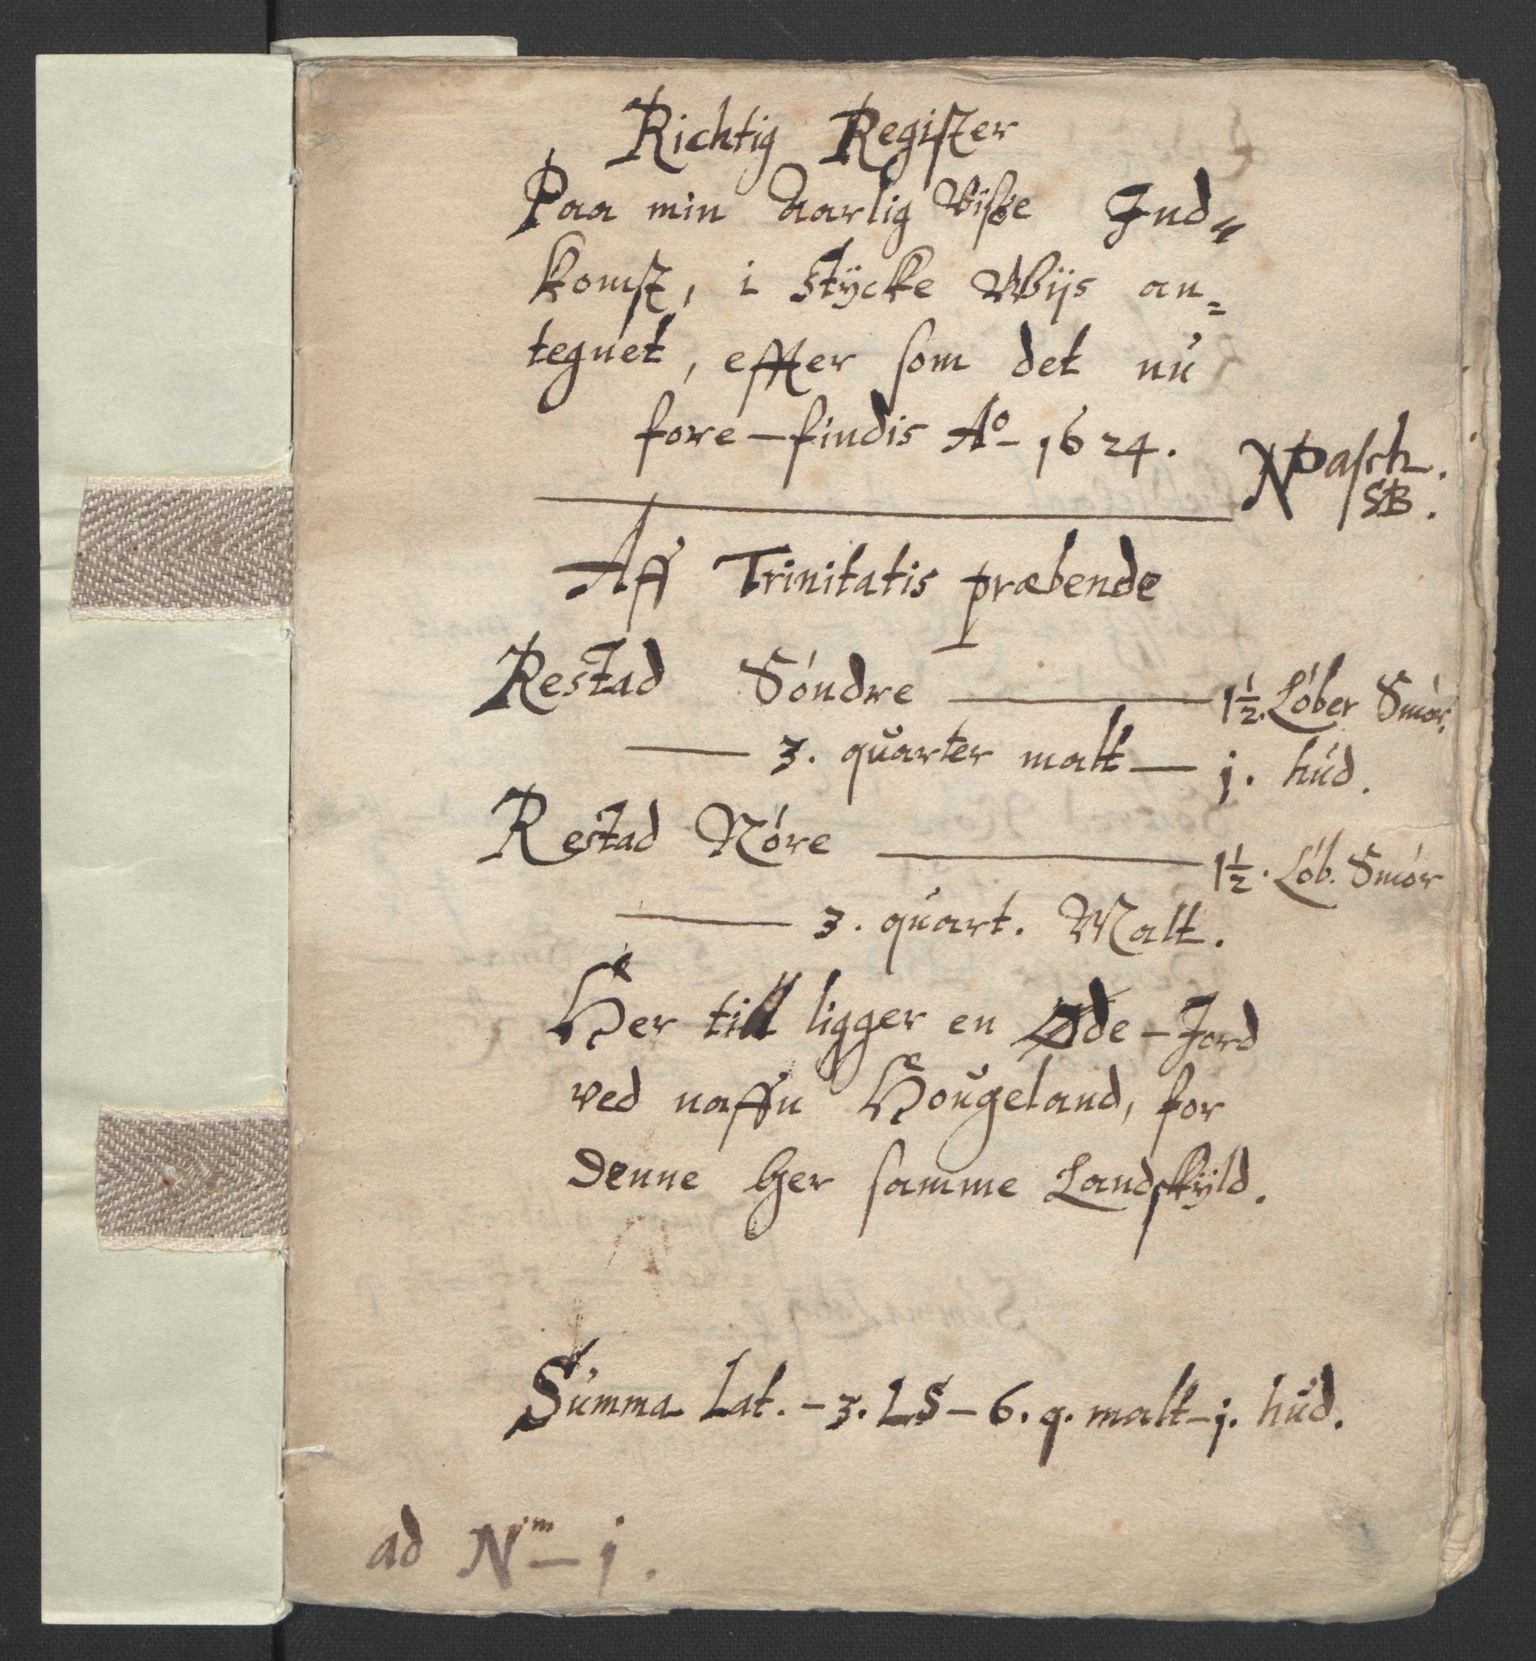 Richtig Register
Paa min Aarlig Visße Ind„
komst, i Stÿcke Wiis an=
tegnet, effter som det nú
fore-findis Aº- 1624.
NPasch.
SB.
Aff Trinitatis præbende
Restad Sóndre — 1½. Lóber Smór.
— 3. qúarter malt — j. húd.
Restad Nóre — 1½. Lób. Smór
— 3. qúart. Malt.
Her till ligger en Øde-Jord
ved naffn Hoúgeland, for
Denne her samme Landskÿld.
Súmma Lat. - 3. LS - 6. q. malt - j. húd.
ad Nm - j.